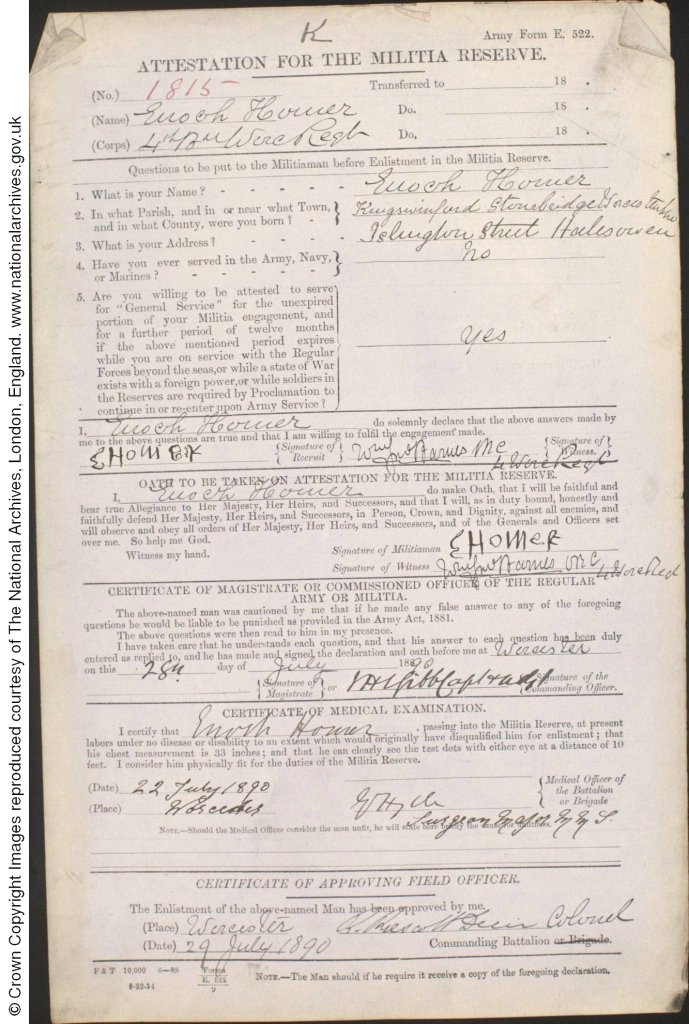 K
Army Form E. 522.
ATTESTATION FOR THE MILITIA RESERVE.
(No.) 1815 Transferred to 18 .
(Name) Enoch Homer Do. 18 .
(Corps) 4th Bn Worc Regt Do. 18 .
Questions to be put to the Militiaman before Enlistment in the Militia Reserve.
1. What is your Name? - - - - - Enoch Homer
2. In what Parish, and in or near what Town, and in what County, were you born? - } Kingswinford Stourbridge Worcestershire
3. What is your Address? - - - - Islington Street Halesowen
4. Have you ever served in the Army, Navy, or Marines? - - - - - } No
5. Are you willing to be attested to serve
for "General Service" for the unexpired
portion of your Militia engagement, and
for a further period of twelve months
if the above mentioned period expires
while you are on service with the Regular
Forces beyond the seas, or while a state of War
exists with a foreign power, or while soldiers in
the Reserves are required by Proclamation to
continue in or re-enter upon Army Service?
Yes
I, Enoch Homer do solemnly declare that the above answers made by
me to the above questions are true and that I am willing to fulfil the engagement made.
E HOMER {Signature of Recruit Barnes {Signature of Witness.
4 Worc Regt
OATH TO BE TAKEN ON ATTESTATION FOR THE MILITIA RESERVE.
I, Enoch Homer do make Oath, that I will be faithful and
bear true Allegiance to Her Majesty, Her Heirs, and Successors, and that I will, as in duty bound, honestly and
faithfully defend Her Majesty, Her Heirs, and Successors, in Person, Crown, and Dignity, against all enemies, and
will observe and obey all orders of Her Majesty, Her Heirs, and Successors, and of the Generals and Officers set
over me. So help me God.
Witness my hand. Signature of Militiaman E HOMER
Signature of Witness Barnes 4 Worc Regt
CERTIFICATE OF MAGISTRATE OR COMMISSIONED OFFICER OF THE REGULAR
ARMY OR MILITIA.
The above-named man was cautioned by me that if he made any false answer to any of the foregoing
questions he would be liable to be punished as provided in the Army Act, 1881.
The above questions were then read to him in my presence.
I have taken care that he understands each question, and that his answer to each question has been duly
entered as replied to, and he has made and signed the declaration and oath before me at Worcester
on this 28th day of July 1890
{Signature of Magistrate} or Gibb Capt & Adjt {Signature of the Commanding Officer.
CERTIFICATE OF MEDICAL EXAMINATION.
I certify that Enoch Homer, passing into the Militia Reserve, at present
labors under no disease or disability to an extent which would originally have disqualified him for enlistment; that
his chest measurement is 33 inches; and that he can clearly see the test dots with either eye at a distance of 10
feet. I consider him physically fit for the duties of the Militia Reserve.
(Date) 22 July 1890
(Place) Worcester
{Medical Officer of the Battalion or Brigade
Surgeon Major
NOTE.—Should the Medical Officer consider the man unfit, he will state here
CERTIFICATE OF APPROVING FIELD OFFICER.
The Enlistment of the above-named Man has been approved by me.
(Place) Worcester Colonel
(Date) 29 July 1890 Commanding Battalion or Brigade.
F & T 10,000 6—88 Forms E. 522 9
8-32-94
NOTE.—The Man should if he require it receive a copy of the foregoing declaration.
© Crown Copyright Images reproduced courtesy of The National Archives, London, England. www.nationalarchives.gov.uk